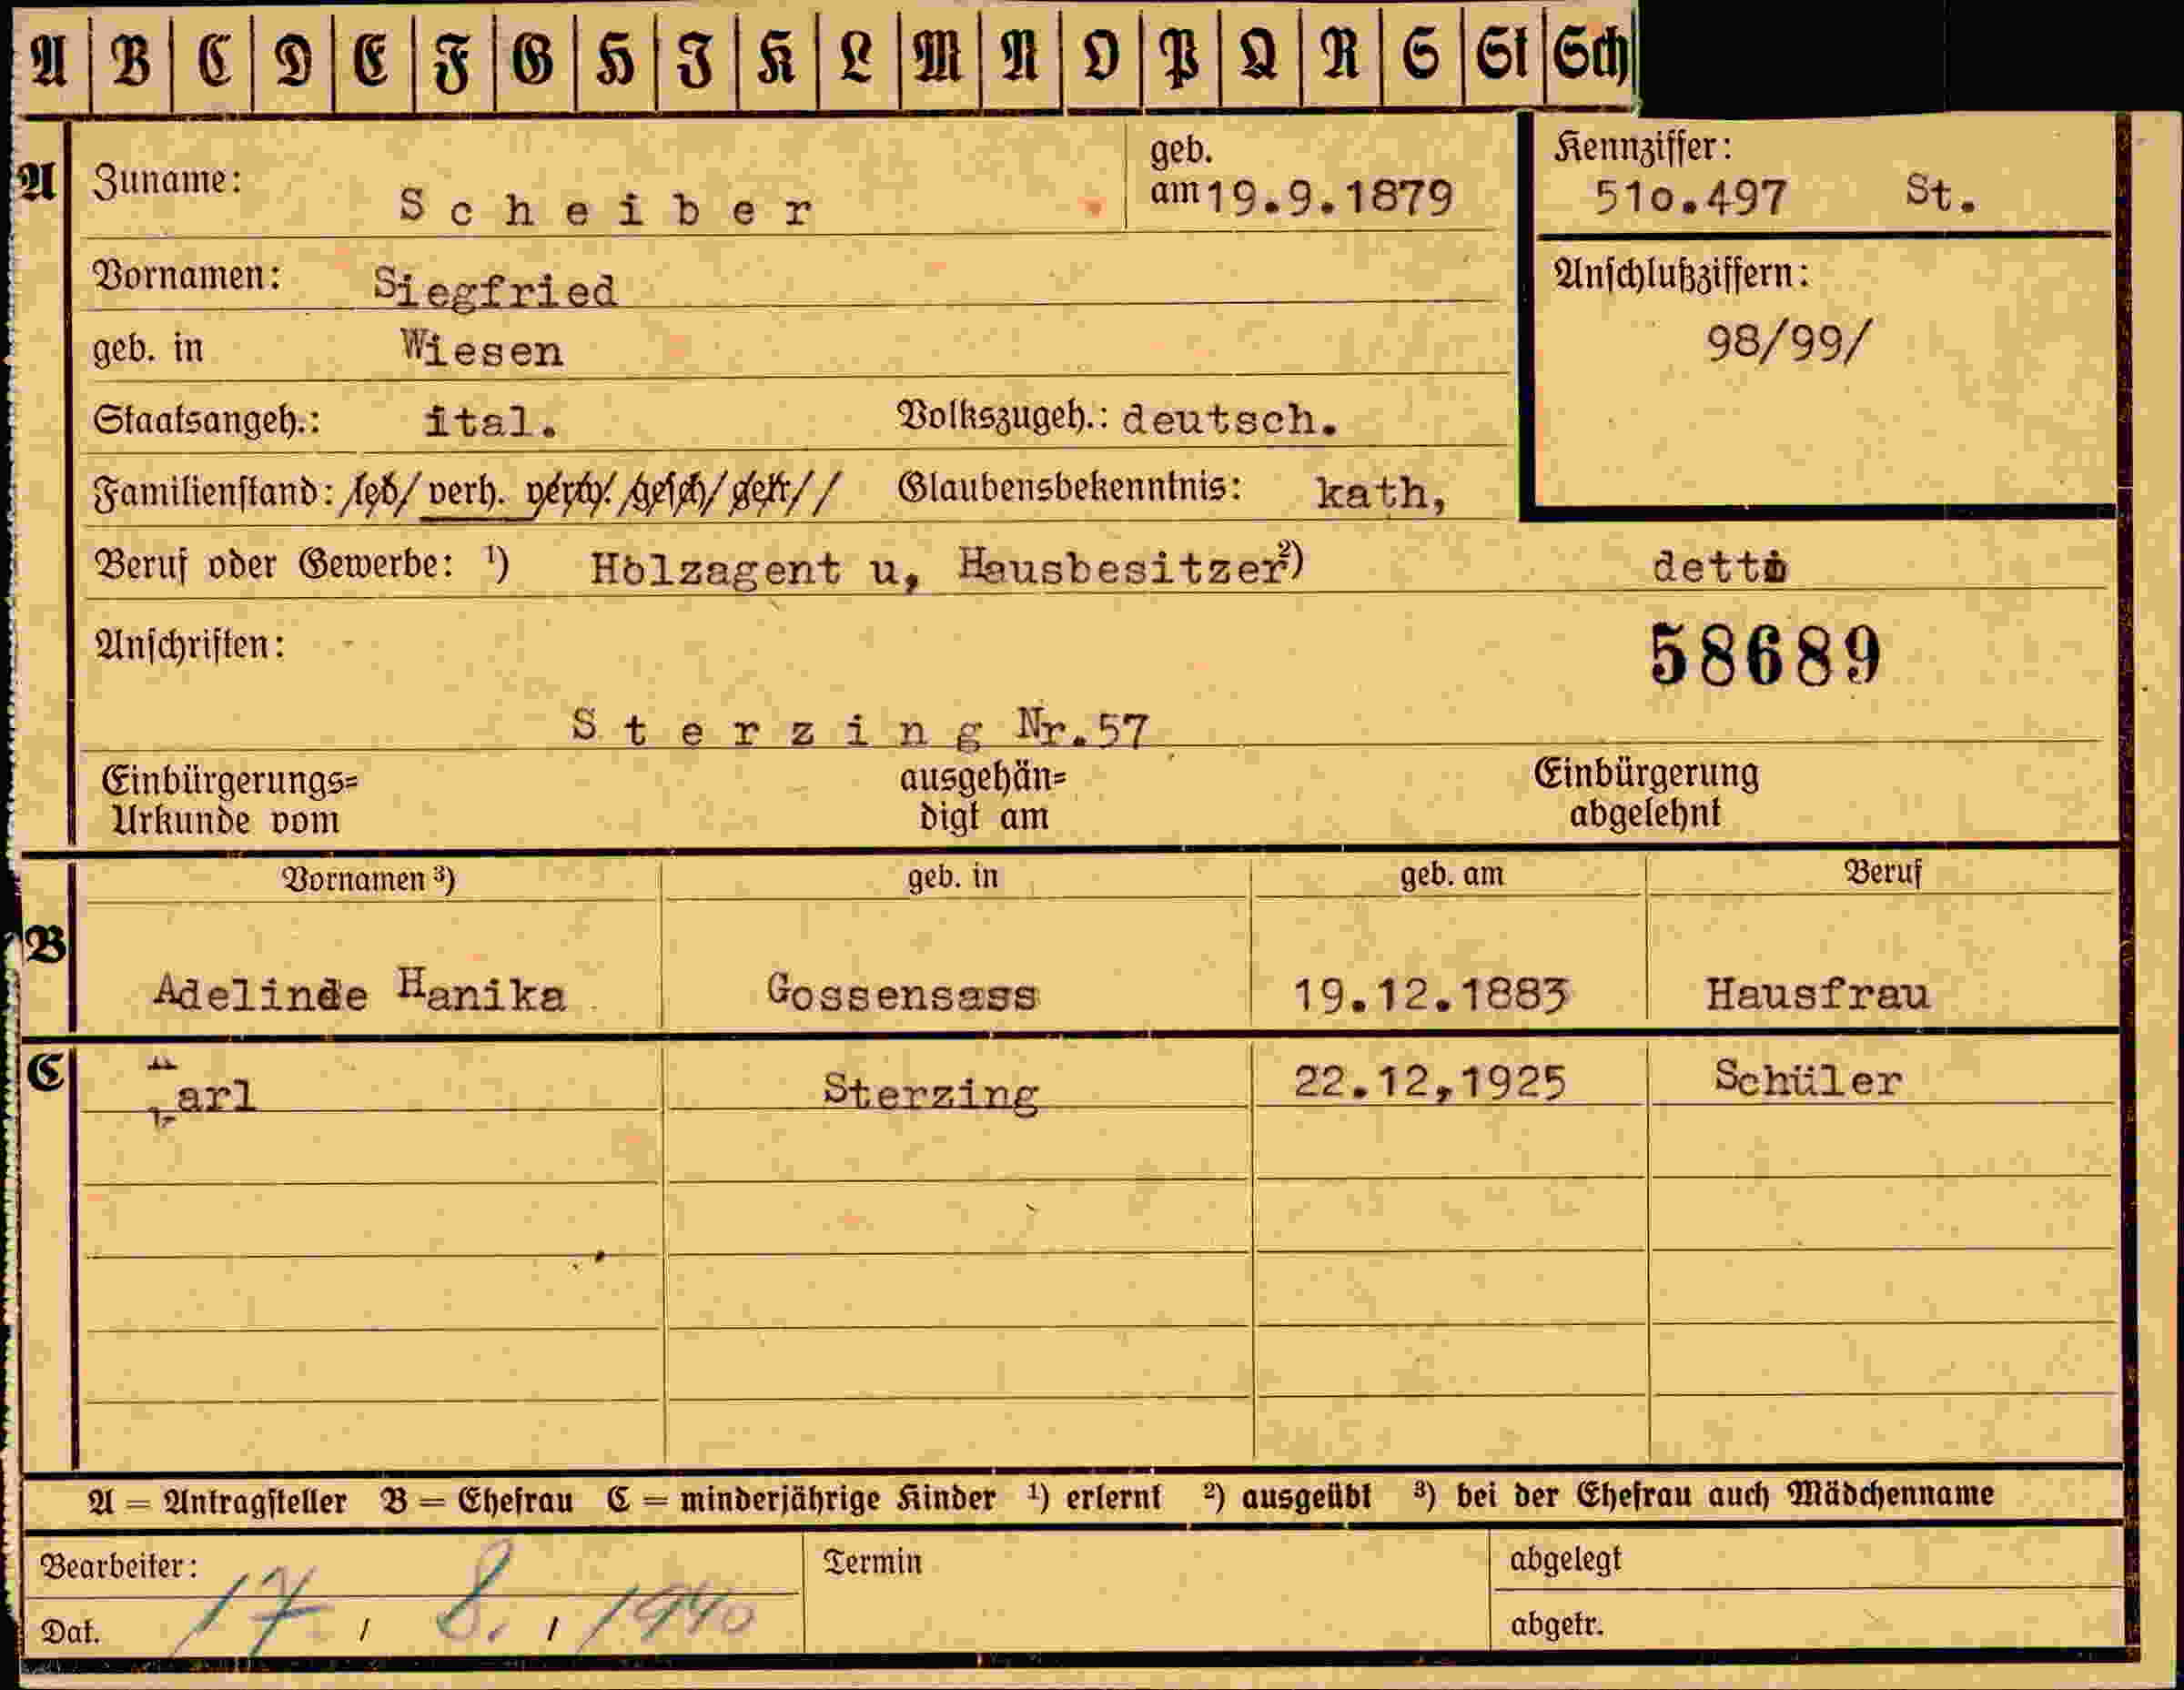 A B C D E F G H I K L M N O P Q R S St Sch
A Zuname: Scheiber geb. am 19.9.1879 Kennziffer: 510.497 St.
Vornamen: Siegfried Anschlußziffern:
geb. in Wiesen 98/99/
Staatsangeh.: ital. Volkszugeh.: deutsch.
Familienstand: led. verh. verw. gesch. getr. Glaubensbekenntnis: kath,
Beruf oder Gewerbe: ¹) Holzagent u, Hausbesitzer ²) detto
Anschriften: 58689
Sterzing Nr.57
Einbürgerungs= ausgehän= Einbürgerung
Urkunde vom digt am abgelehnt
Vornamen ³) geb. in geb. am Beruf
B
Adelinde Hanika Gossensass 19.12.1883 Hausfrau
C Karl Sterzing 22.12,1925 Schüler
A = Antragsteller B = Ehefrau C = minderjährige Kinder ¹) erlernt ²) ausgeübt ³) bei der Ehefrau auch Mädchenname
Bearbeiter: Termin abgelegt
Dat. 17. 8. 1940 abgetr.